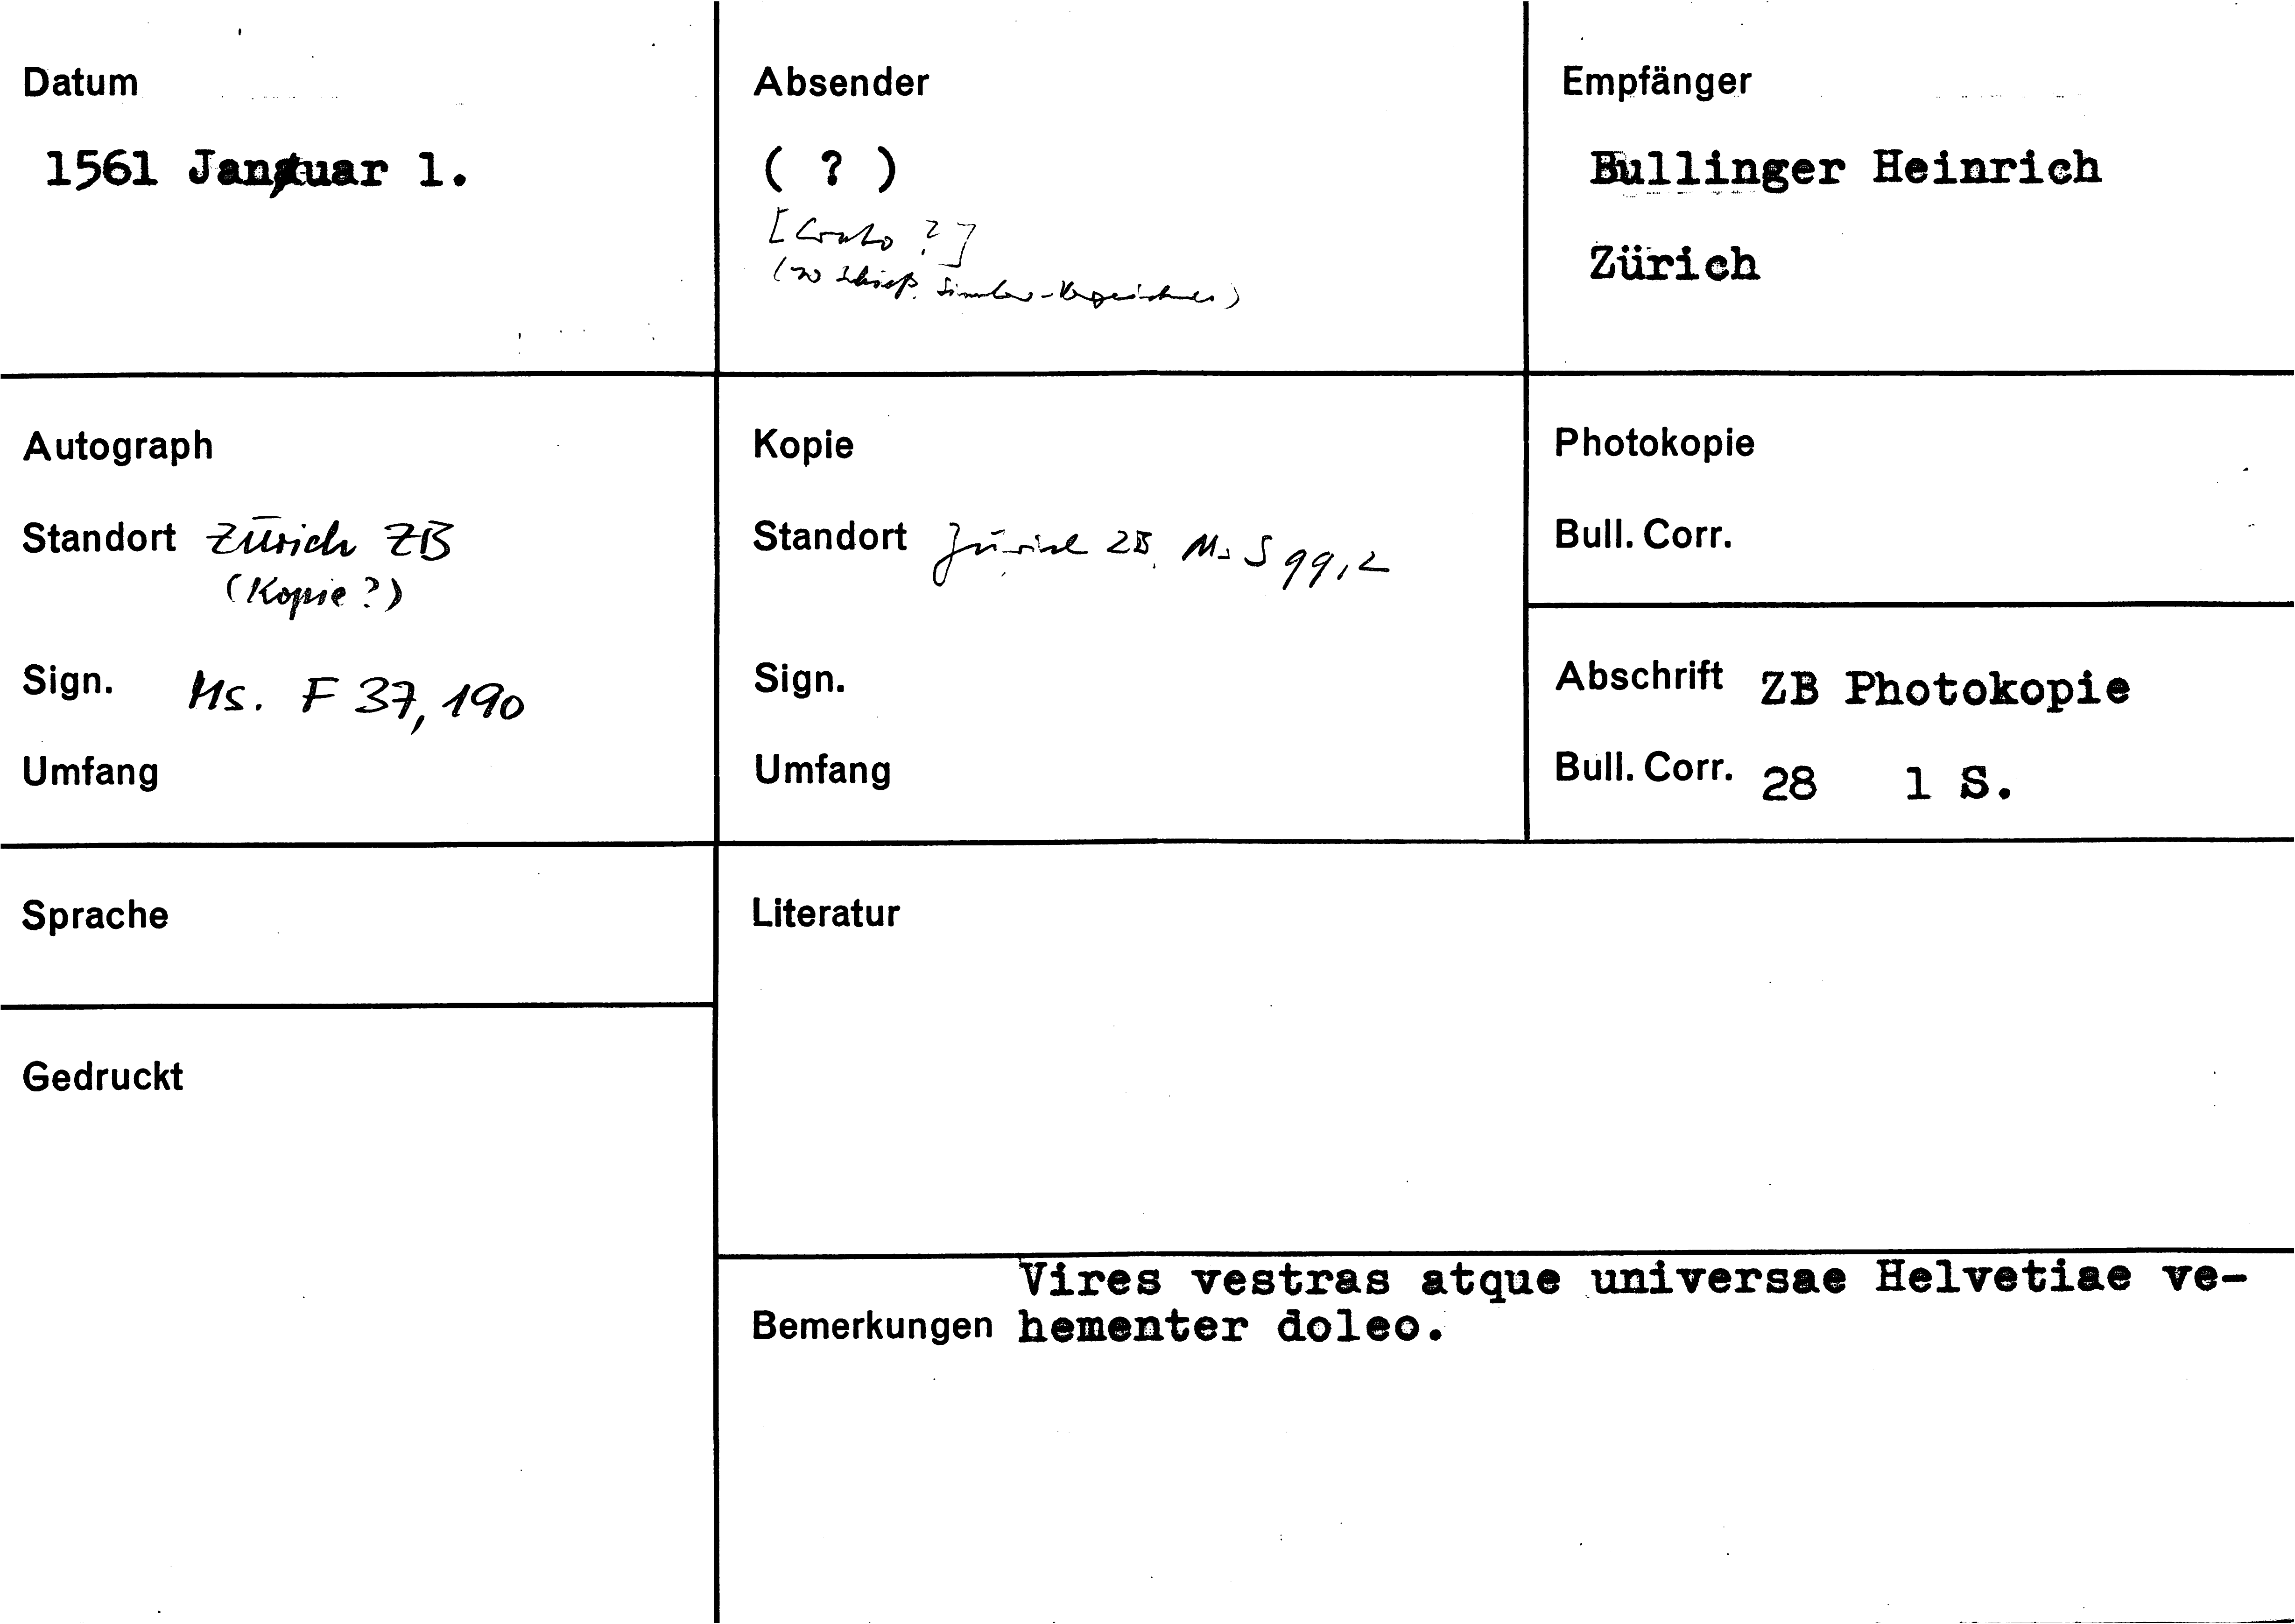 Datum
1561 Januar 1.
Absender
( ? )
[Crato ?]
(so Schieß, Simler-Verzeichnis)
Empfänger
Bullinger Heinrich
Zürich
Autograph
Standort Zürich ZB
(Kopie?)
Sign. Ms. F 37, 190
Umfang
Kopie
Standort Zürich ZB, Ms S 99, 2
Sign.
Umfang
Photokopie
Bull. Corr.
Abschrift ZB Photokopie
Bull. Corr. 28 1 S.
Sprache
Gedruckt
Literatur
Vires vestras atque universae Helvetiae ve-
Bemerkungen hementer doleo.